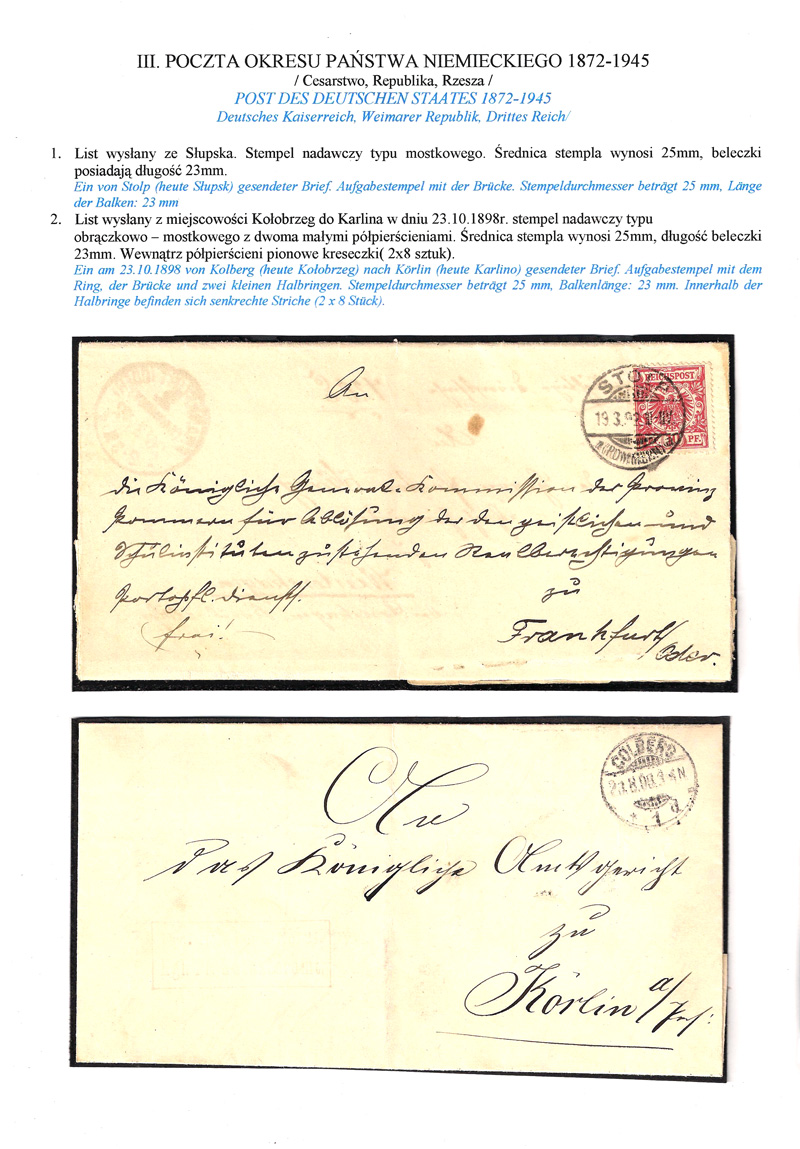 III. POCZTA OKRESU PAŃSTWA NIEMIECKIEGO 1872-1945
/ Cesarstwo, Republika, Rzesza /
POST DES DEUTSCHEN STAATES 1872-1945
Deutsches Kaiserreich, Weimarer Republik, Drittes Reich/
1. List wysłany ze Słupska. Stempel nadawczy typu mostkowego. Średnica stempla wynosi 25mm, beleczki
posiadają długość 23mm.
Ein von Stolp (heute Słupsk) gesendeter Brief. Aufgabestempel mit der Brücke. Stempeldurchmesser beträgt 25 mm, Länge
der Balken: 23 mm
2. List wysłany z miejscowości Kołobrzeg do Karlina w dniu 23.10.1898r. stempel nadawczy typu
obrączkowo – mostkowego z dwoma małymi półpierścieniami. Średnica stempla wynosi 25mm, długość beleczki
23mm. Wewnątrz półpierścieni pionowe kreseczki( 2x8 sztuk).
Ein am 23.10.1898 von Kolberg (heute Kołobrzeg) nach Körlin (heute Karlino) gesendeter Brief. Aufgabestempel mit dem
Ring, der Brücke und zwei kleinen Halbringen. Stempeldurchmesser beträgt 25 mm, Balkenlänge: 23 mm. Innerhalb der
Halbringe befinden sich senkrechte Striche (2 x 8 Stück).
An
STOLP
REICHSPOST
19.3.92
PF.
die Königliche General-Kommission der Provinz
Pommern für Ablösung der den geistlichen und
Schulinstituten zustehenden Realberechtigungen
portopfl. Dienstf.
zu
frei!
Frankfurt/
Oder.
COLBERG
An
das Königliche Amtsgericht
zu
Körlin a/Pers: